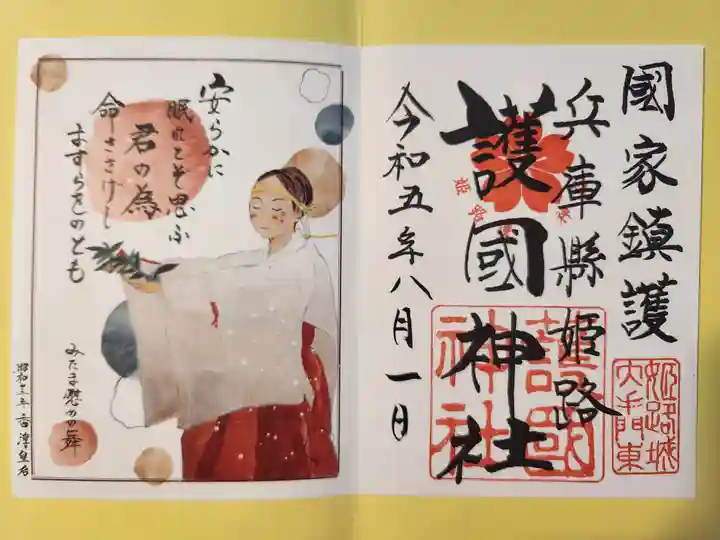 國家鎮護
兵庫縣姫路
護國神社
令和五年八月一日
護國
神社
姫路城
大手門東
安らかに
眠れとぞ思ふ
君の為
命ささげし
ますらをのとも
みたま慰めの舞